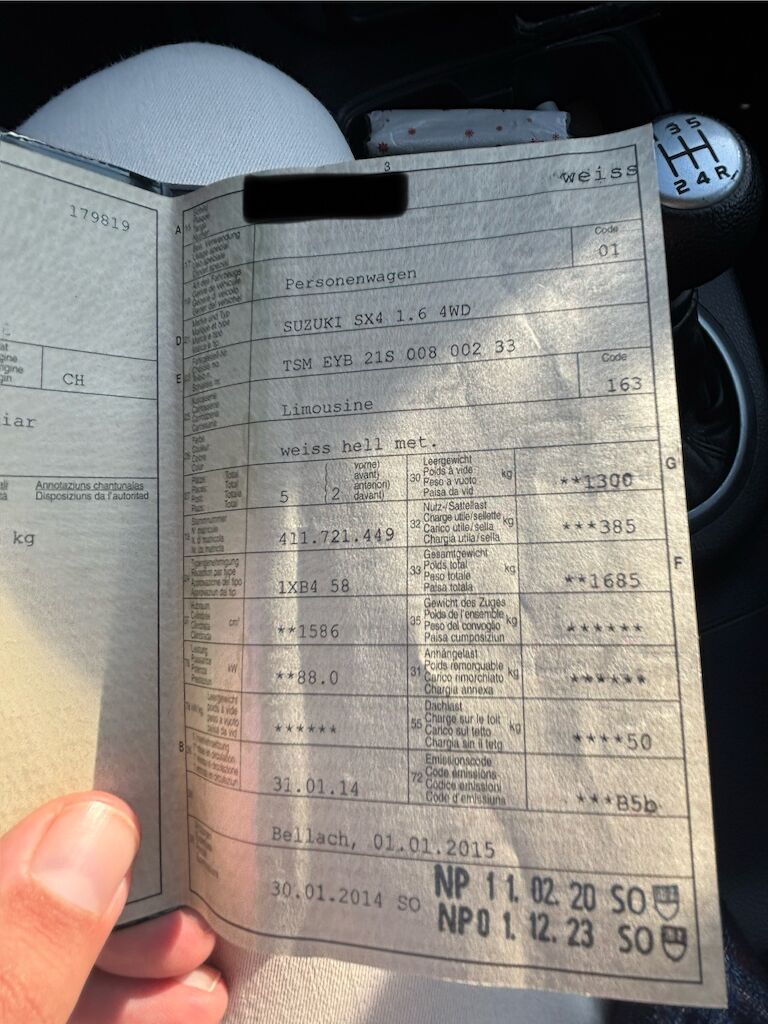 3 5
2 4 R
179819
CH
iar
Annotaziuns chantunalas
Disposiziuns da l'autoritad
kg
3
A
weiss
Code
01
Personenwagen
D
SUZUKI SX4 1.6 4WD
E
TSM EYB 21S 008 002 33
Code
163
Limousine
weiss hell met.
Total
Total
Totale
Total
5
2
vorne)
avant)
anteriori)
davant)
30
Leergewicht
Poids à vide
Peso a vuoto
Paisa da vid
kg
**1300
G
411.721.449
32
Nutz-/Sattellast
Charge utile/sellette
Carico utile/sella
Chargia utila/sella
kg
***385
1XB4 58
33
Gesamtgewicht
Poids total
Peso totale
Paisa totala
kg
**1685
F
cm³
**1586
35
Gewicht des Zuges
Poids de l'ensemble
Peso del convoglio
Paisa cumposiziun
kg
******
kW
**88.0
31
Anhängelast
Poids remorquable
Carico rimorchiato
Chargia annexa
kg
******
Leergewicht
poids à vide
peso a vuoto
paisa da vid
******
55
Dachlast
Charge sur le toit
Carico sul tetto
Chargia sin il tetg
kg
****50
B
31.01.14
72
Emissionscode
Code émissions
Codice emissioni
Code d'emissiuns
***B5b
Bellach, 01.01.2015
30.01.2014 SO
NP 11.02.20 SO
NP 01.12.23 SO